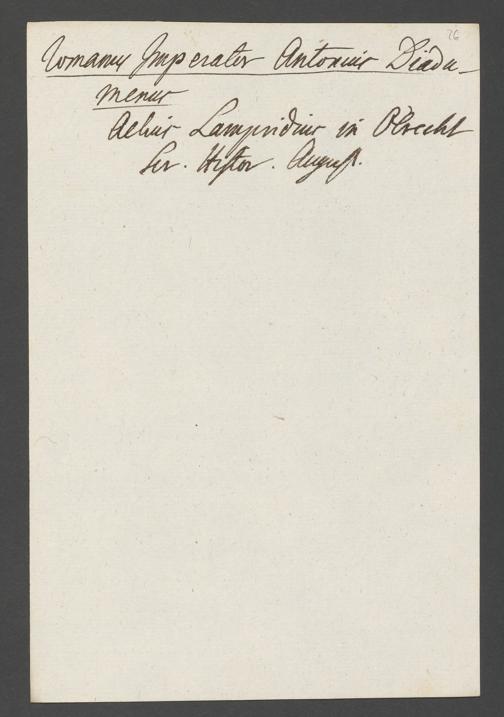 26
Romanus Imperator Antonius Diadu-
menus
Aelius Lampridius in Obrecht
Scr. Histor. August.